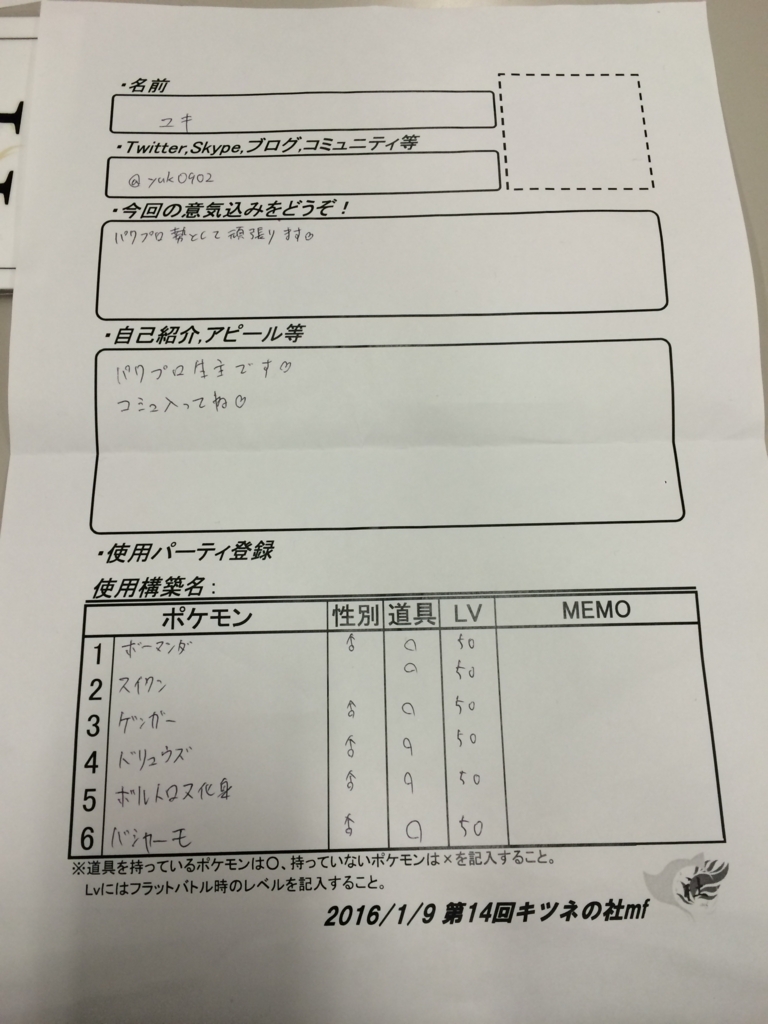 ・名前
ユキ
・Twitter,Skype,ブログ,コミュニティ等
@yuk0902
・今回の意気込みをどうぞ！
パワプロ勢として頑張ります♡
・自己紹介,アピール等
パワプロ生主です♡
コミュ入ってね♡
・使用パーティ登録
使用構築名：
ポケモン 性別 道具 LV MEMO
1 ボーマンダ ♂ ○ 50
2 スイクン ○ 50
3 ゲンガー ♂ ○ 50
4 ドリュウズ ♂ ○ 50
5 ボルトロス化身 ♂ ○ 50
6 バシャーモ ♂ ○ 50
※道具を持っているポケモンは○、持っていないポケモンは×を記入すること。
Lvにはフラットバトル時のレベルを記入すること。
2016/1/9 第14回キツネの社mf